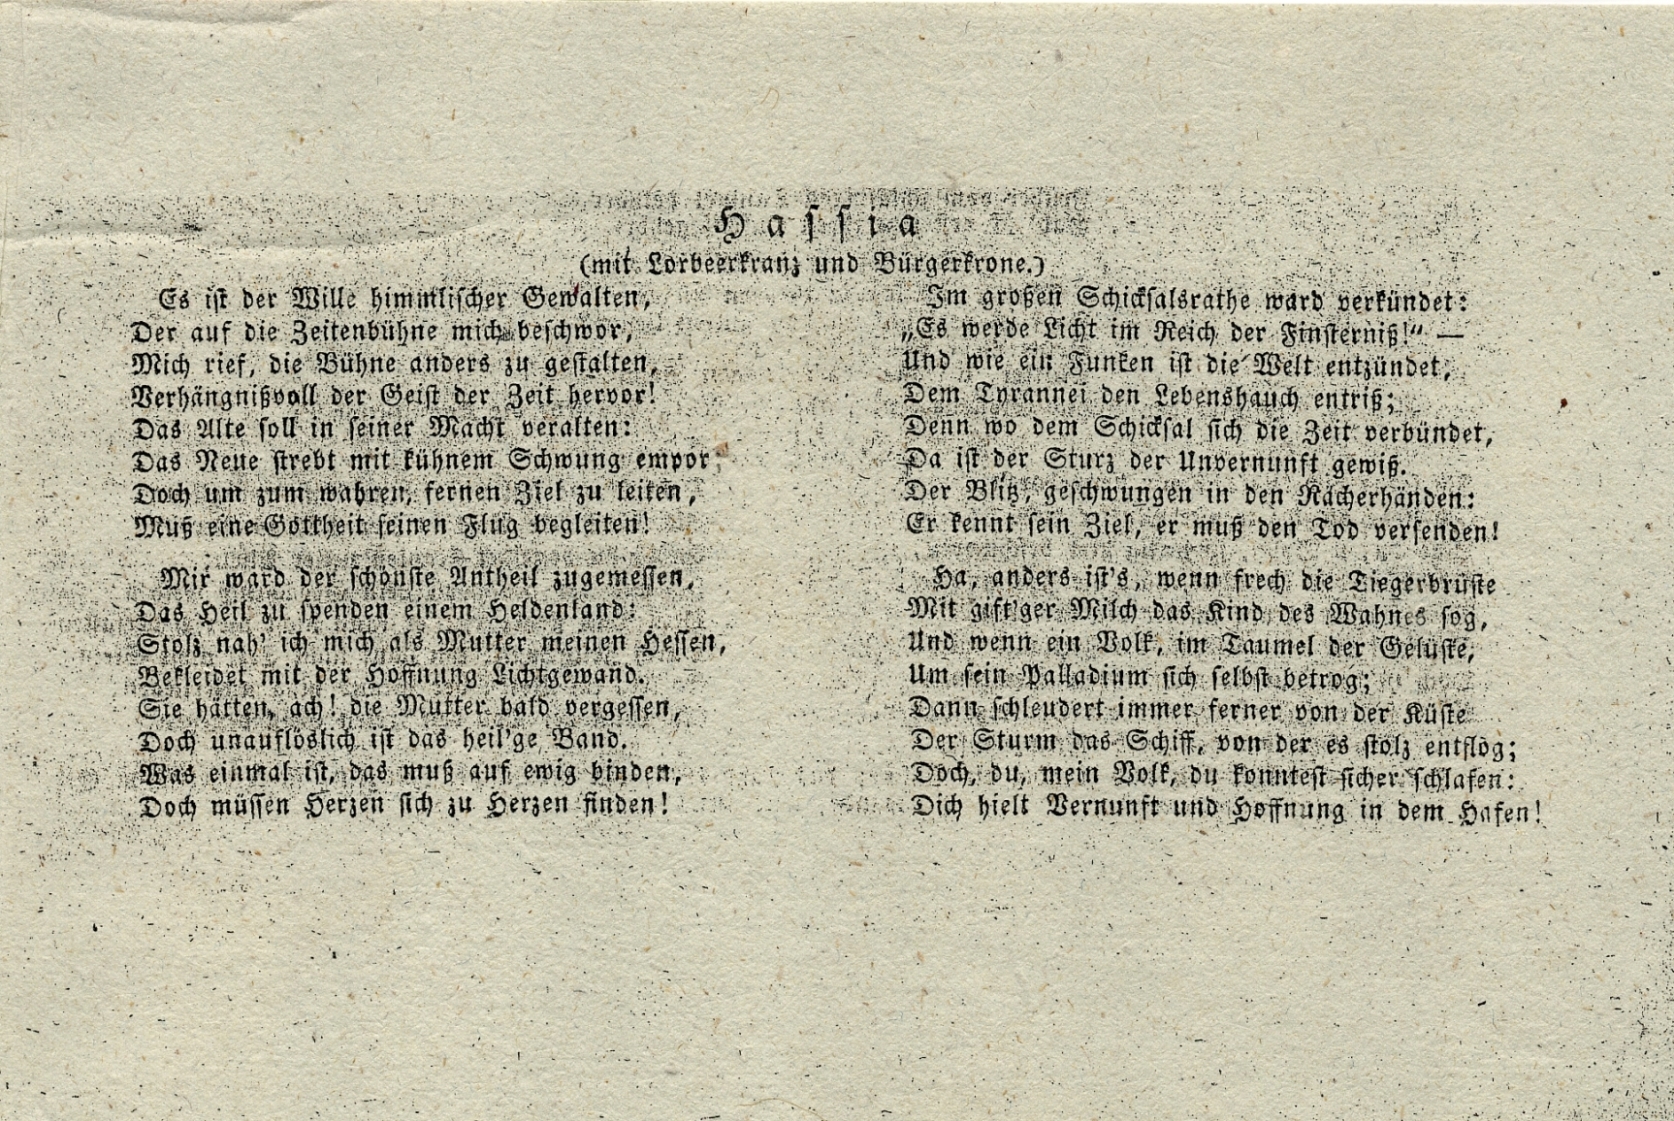 Hassia
(mit Lorbeerkranz und Bürgerkrone.)
Es ist der Wille himmlischer Gewalten,
Der auf die Zeitenbühne mich beschwor,
Mich rief, die Bühne anders zu gestalten,
Verhängnißvoll der Geist der Zeit hervor!
Das Alte soll in seiner Macht veralten:
Das Neue strebt mit kühnem Schwung empor;
Doch um zum wahren, fernen Ziel zu leiten,
Muß eine Gottheit seinen Flug begleiten!
Mir ward der schönste Antheil zugemessen,
Das Heil zu spenden einem Heldenland:
Stolz nah' ich mich als Mutter meinen Hessen,
Bekleidet mit der Hoffnung Lichtgewand.
Sie hätten, ach! die Mutter bald vergessen,
Doch unauflöslich ist das heil'ge Band.
Was einmal ist, das muß auf ewig binden,
Doch müssen Herzen sich zu Herzen finden!
Im großen Schicksalsrathe ward verkündet:
„Es werde Licht im Reich der Finsterniß!“ —
Und wie ein Funken ist die Welt entzündet,
Dem Tyrannei den Lebenshauch entriß;
Denn wo dem Schicksal sich die Zeit verbündet,
Da ist der Sturz der Unvernunft gewiß.
Der Blitz, geschwungen in den Rächerhänden:
Er kennt sein Ziel, er muß den Tod versenden!
Ha, anders ist's, wenn frech die Tiegerbrüste
Mit gift'ger Milch das Kind des Wahnes sog,
Und wenn ein Volk, im Taumel der Gelüste,
Um sein Palladium sich selbst betrog;
Dann schleudert immer ferner von der Küste
Der Sturm das Schiff, von der es stolz entflog;
Doch, du, mein Volk, du konntest sicher schlafen:
Dich hielt Vernunft und Hoffnung in dem Hafen!